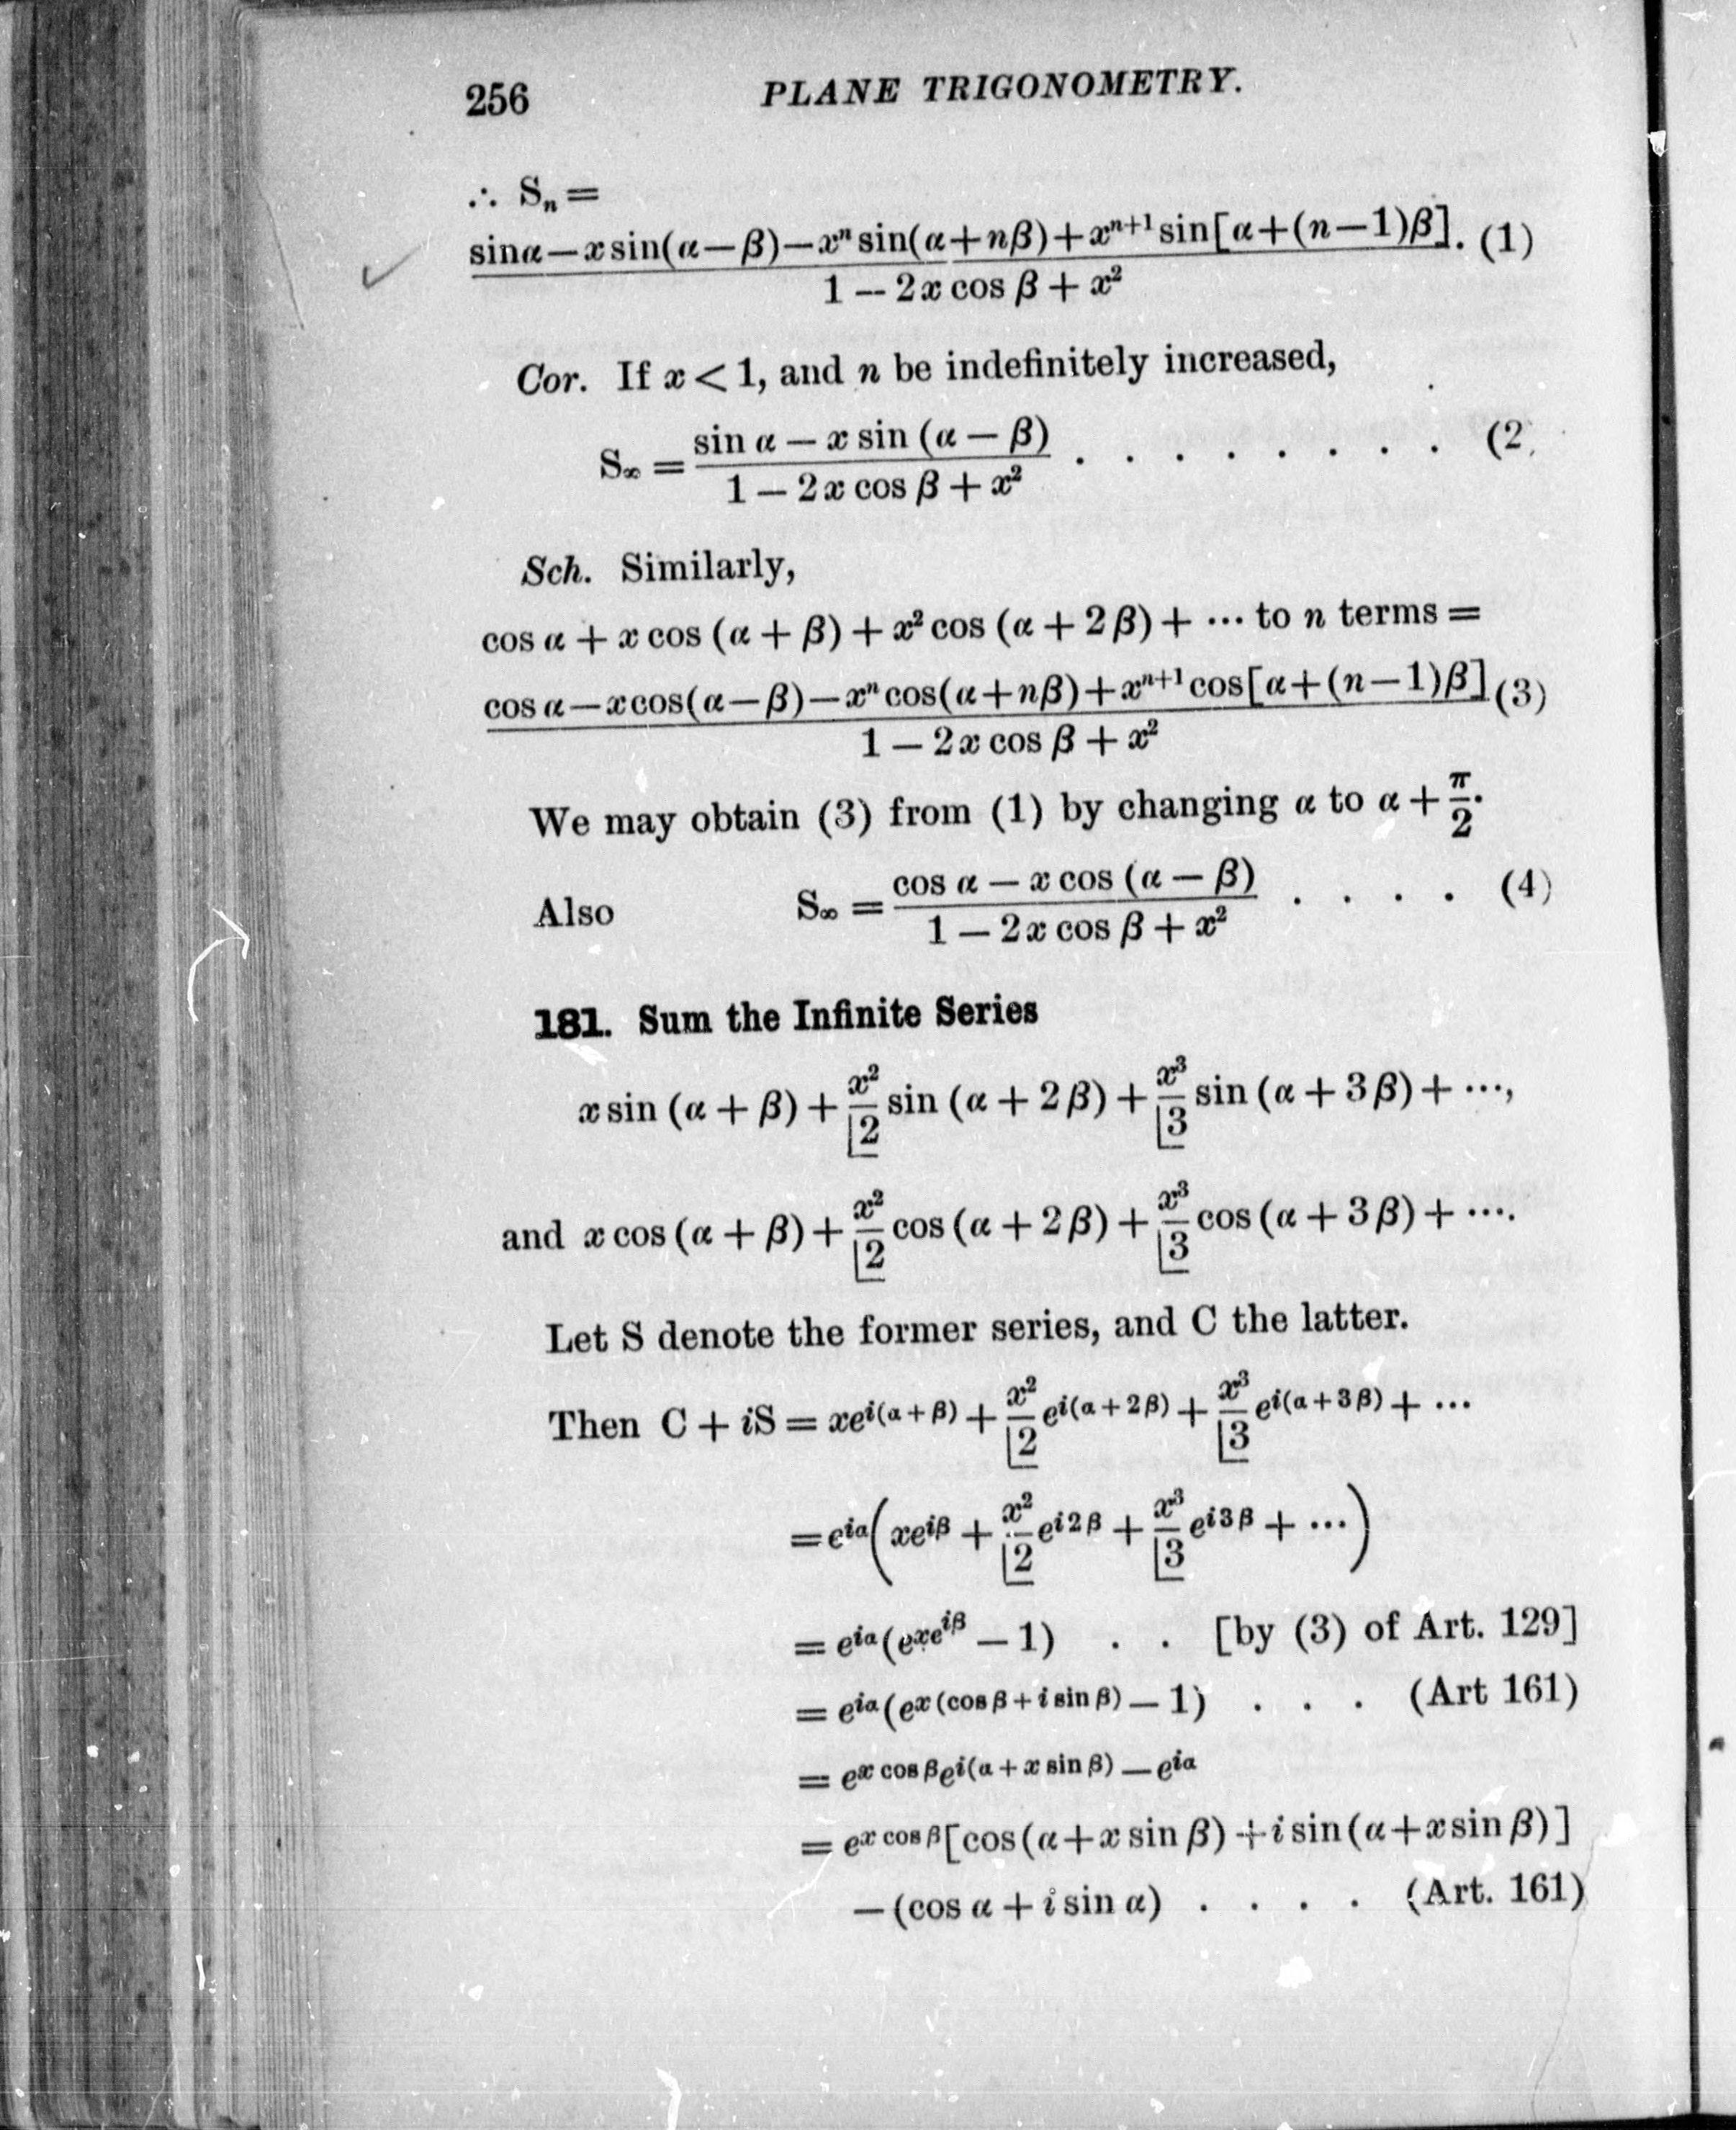 256 PLANE TRIGONOMETRY.
∴ Sₙ =
sin α − x sin(α − β) − xⁿ sin(α + nβ) + xⁿ⁺¹ sin[α + (n − 1)β]. (1)
1 − 2x cos β + x²
Cor. If x < 1, and n be indefinitely increased,
S∞ = sin α − x sin (α − β) . . . . . . . . (2
1 − 2x cos β + x²
Sch. Similarly,
cos α + x cos (α + β) + x² cos (α + 2β) + ··· to n terms =
cos α − x cos(α − β) − xⁿ cos(α + nβ) + xⁿ⁺¹ cos[α + (n − 1)β] (3)
1 − 2x cos β + x²
We may obtain (3) from (1) by changing α to α + π/2.
Also S∞ = cos α − x cos (α − β) . . . . (4)
1 − 2x cos β + x²
181. Sum the Infinite Series
x sin (α + β) + x²/⌊2 sin (α + 2β) + x³/⌊3 sin (α + 3β) + ···,
and x cos (α + β) + x²/⌊2 cos (α + 2β) + x³/⌊3 cos (α + 3β) + ···.
Let S denote the former series, and C the latter.
Then C + iS = xe^{i(α + β)} + x²/⌊2 e^{i(α + 2β)} + x³/⌊3 e^{i(α + 3β)} + ···
= e^{iα}(xe^{iβ} + x²/⌊2 e^{i2β} + x³/⌊3 e^{i3β} + ···)
= e^{iα}(e^{xe^{iβ}} − 1) . . [by (3) of Art. 129]
= e^{iα}(e^{x(cos β + i sin β)} − 1) . . . (Art 161)
= e^{x cos β}e^{i(α + x sin β)} − e^{iα}
= e^{x cos β}[cos(α + x sin β) + i sin(α + x sin β)]
− (cos α + i sin α) . . . . (Art. 161)